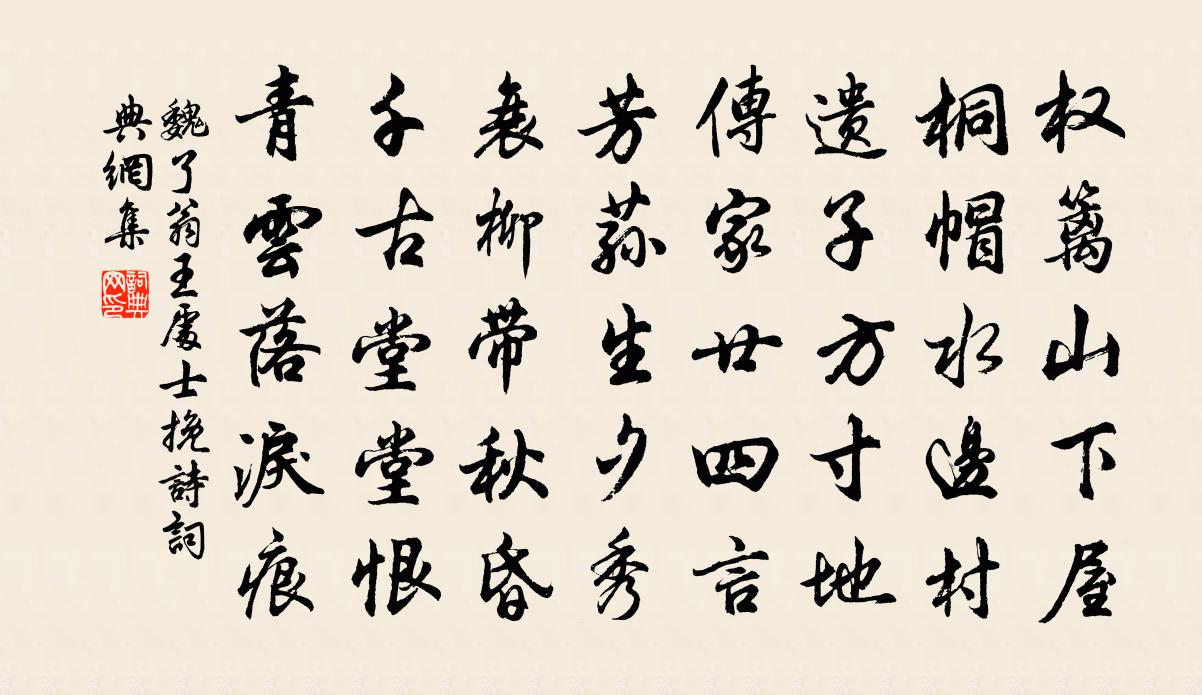 杈篱山下屋
桐帽水邊村
遗子方寸地
傳家廿四言
芳荪生夕秀
衰柳带秋昏
千古堂堂恨
青雲落淚痕
魏了翁王處士挽詩詞
典網集
詞典
网印